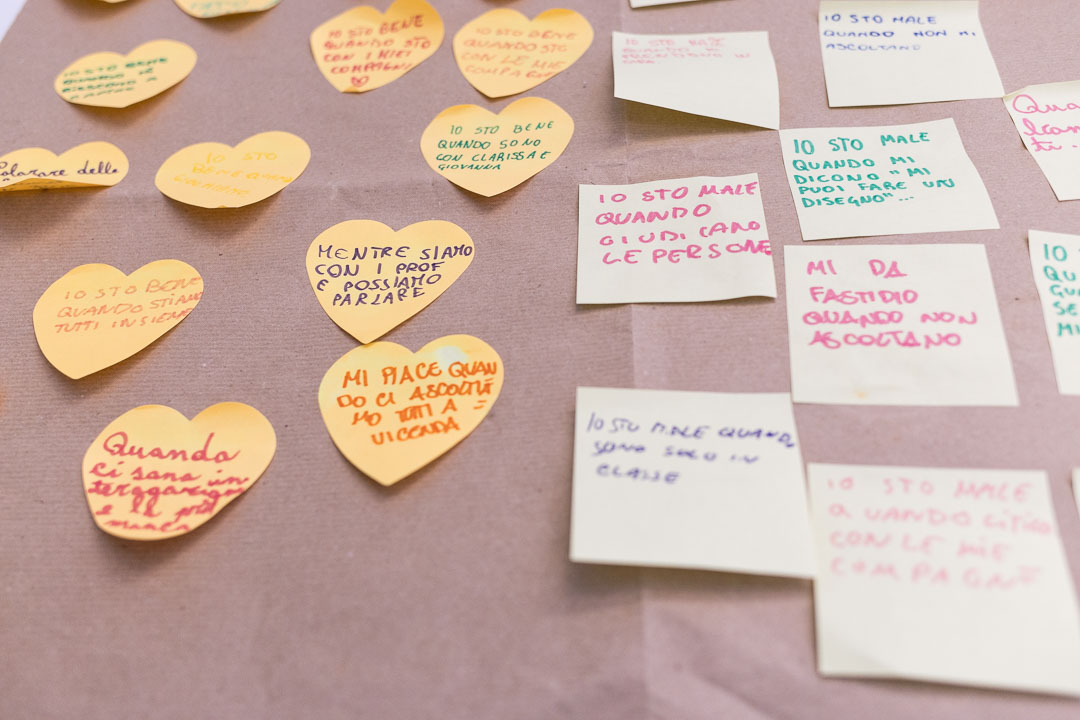 IO STO BENE
QUANDO
DISEGNO A
IO STO BENE
QUANDO STO
CON I MIEI
COMPAGNI
IO STO BENE
QUANDO STO
CON LE MIE
COMPAGNE
IO STO BENE
QUANDO SONO
CON CLARISSA E
GIOVANNA
IO STO
MENTRE SIAMO
CON I PROF
E POSSIAMO
PARLARE
IO STO BENE
QUANDO STIAMO
TUTTI INSIEME
MI PIACE QUAN
DO CI ASCOLTIA
MO TUTTI A =
VICENDA
Quando
ci sono in
terrogazioni
e il prof
manca
IO STO MALE
QUANDO NON MI
ASCOLTANO
IO STO MALE
QUANDO MI
DICONO "MI
PUOI FARE UN
DISEGNO"...
IO STO MALE
QUANDO
GIUDICANO
LE PERSONE
MI DA
FASTIDIO
QUANDO NON
ASCOLTANO
IO STO MALE QUANDO
SONO SOLO IN
CLASSE
IO STO MALE
QUANDO LITIGO
CON LE MIE
COMPAGNE